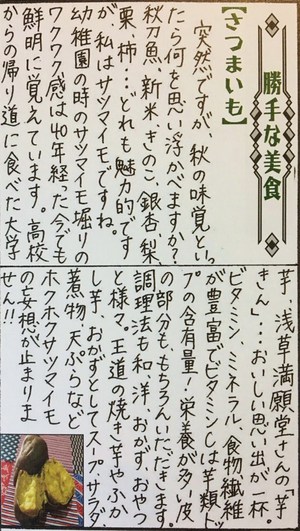 勝手な美食
【さつまいも】
突然ですが、秋の味覚といっ
たら何を思い浮かべますか?
秋刀魚、新米、きのこ、銀杏、梨、
栗、柿…どれも魅力的です
が、私はサツマイモですね。
幼稚園の時のサツマイモ堀りの
ワクワク感は40年経った今でも
鮮明に覚えています。高校
からの帰り道に食べた大学
芋、浅草満願堂さんの「芋
きん」...おいしい思い出が一杯。
ビタミン、ミネラル、食物繊維
が豊富でビタミンCは芋類トッ
プの含有量!栄養が多い皮
の部分ももちろんいただきます。
調理法も和洋、おかず、おやつ
と様々。王道の焼き芋やふか
し芋、おかずとしてスープ、サラダ、
煮物、天ぷらなど
ホクホクサツマイモ
の妄想が止まりま
せん!!